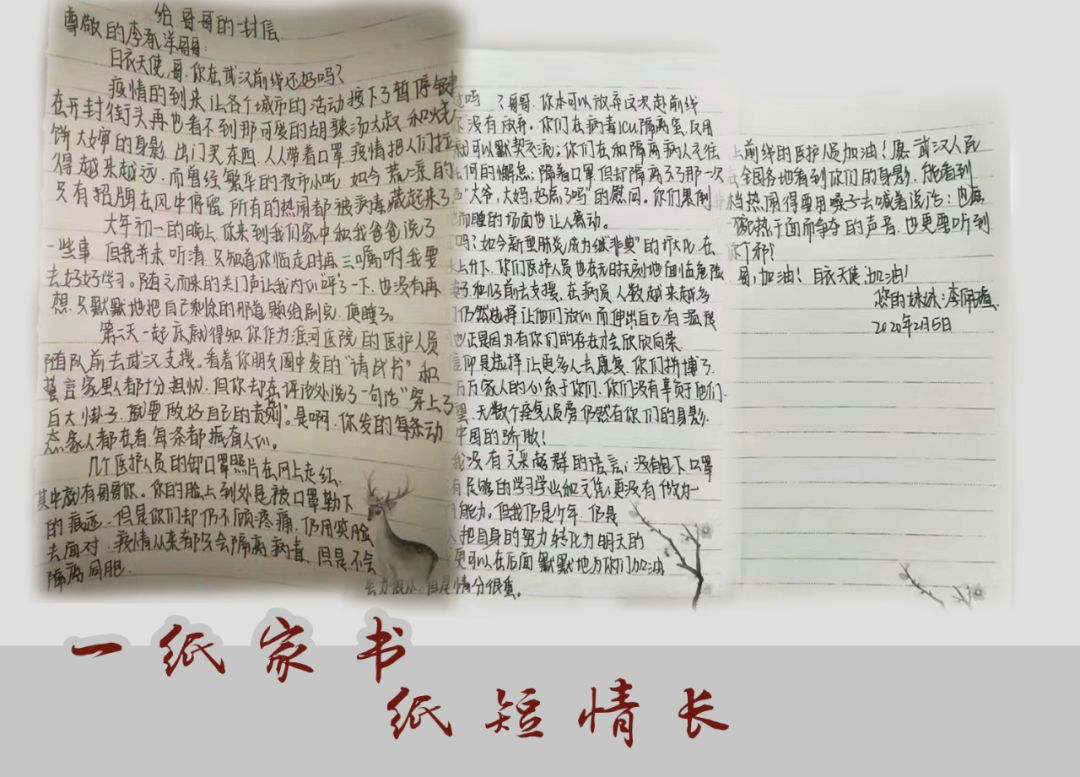 给哥哥的一封信
尊敬的李承洋哥哥：
白衣天使，哥，你在武汉前线还好吗？
疫情的到来让各个城市的活动按下了暂停键
在开封街头再也看不到那可爱的胡辣汤大叔和火烧
饼大婶的身影，出门买东西，人人带着口罩，疫情把人们拉
得越来越远，而曾经繁华的夜市小吃，如今荒凉的
只有招牌在风中停留，所有的热闹都被病毒藏起来了
大年初一的晚上，你来到我们家中和我爸爸说了
一些事，但我并未听清，只知道你临走时再三叮嘱咐我要
去好好学习。随之而来的关门声让我内心“呯”了一下，也没有再
想，只默默地把自己剩余的那道题给刷完，便睡了。
第二天一起床就得知你作为淮河医院的医护人员
随队前去武汉支援。看着你朋友圈中发的“请战书”和
誓言家里人都十分担忧，但你却在评论处说了一句话“穿上了
白大褂了，就要做好自己的责则”。是啊，你发的每条动
态，家人都在看，每条都振奋人心。
几个医护人员的卸口罩照片在网上走红，
其中就有哥哥你。你的脸上到处是被口罩勒下
的痕迹，但是你们却仍不顾疼痛，仍用笑脸
去面对，疫情从来都只会隔离病毒，但是不会
隔离同胞。
吗？哥哥，你本可以放弃这次赴前线
你没有放弃。你们在病毒ICU隔离室，只用
可以默契交流。你们在和隔离病人交往
任何的懈怠；隔着口罩但却隔离不了那一次
“大爷，大妈，好点了吗”的慰问。你们累倒
地而睡的场面也让人感动。
吗？如今新型肺炎成为继“非典”的扩大化，在
上升下，你们医护人员也在无时无刻地面临危险
前去支援，在病员人数越来越多
仍然选择让他们放心而伸出自己有温度
也正是因为有你们的存在才会欣欣向荣
仰是选择让更多人去康复，你们拼搏了
万万家人的心系于你们，你们没有辜负于他们
无数个痊愈人员旁仍然有你们的身影
中国的骄傲！
我没有文采超群的语言；没有
有足够的学习学业和文凭；更没有做为一
的能力。但我仍是少年，仍是
把自身的努力转化为明天的
更可以在后面默默地为你们加油
情分很重。
上前线的医护人员加油！愿武汉人民
在全国各地看到你们的身影，能看到
热闹得要用嗓子去喊着说话；也能
一碗热干面而争夺的声音，也更要听到
你们那！
哥，加油！白衣天使，加油！
您的妹妹：李佩
2020年2月5日
一纸家书
纸短情长